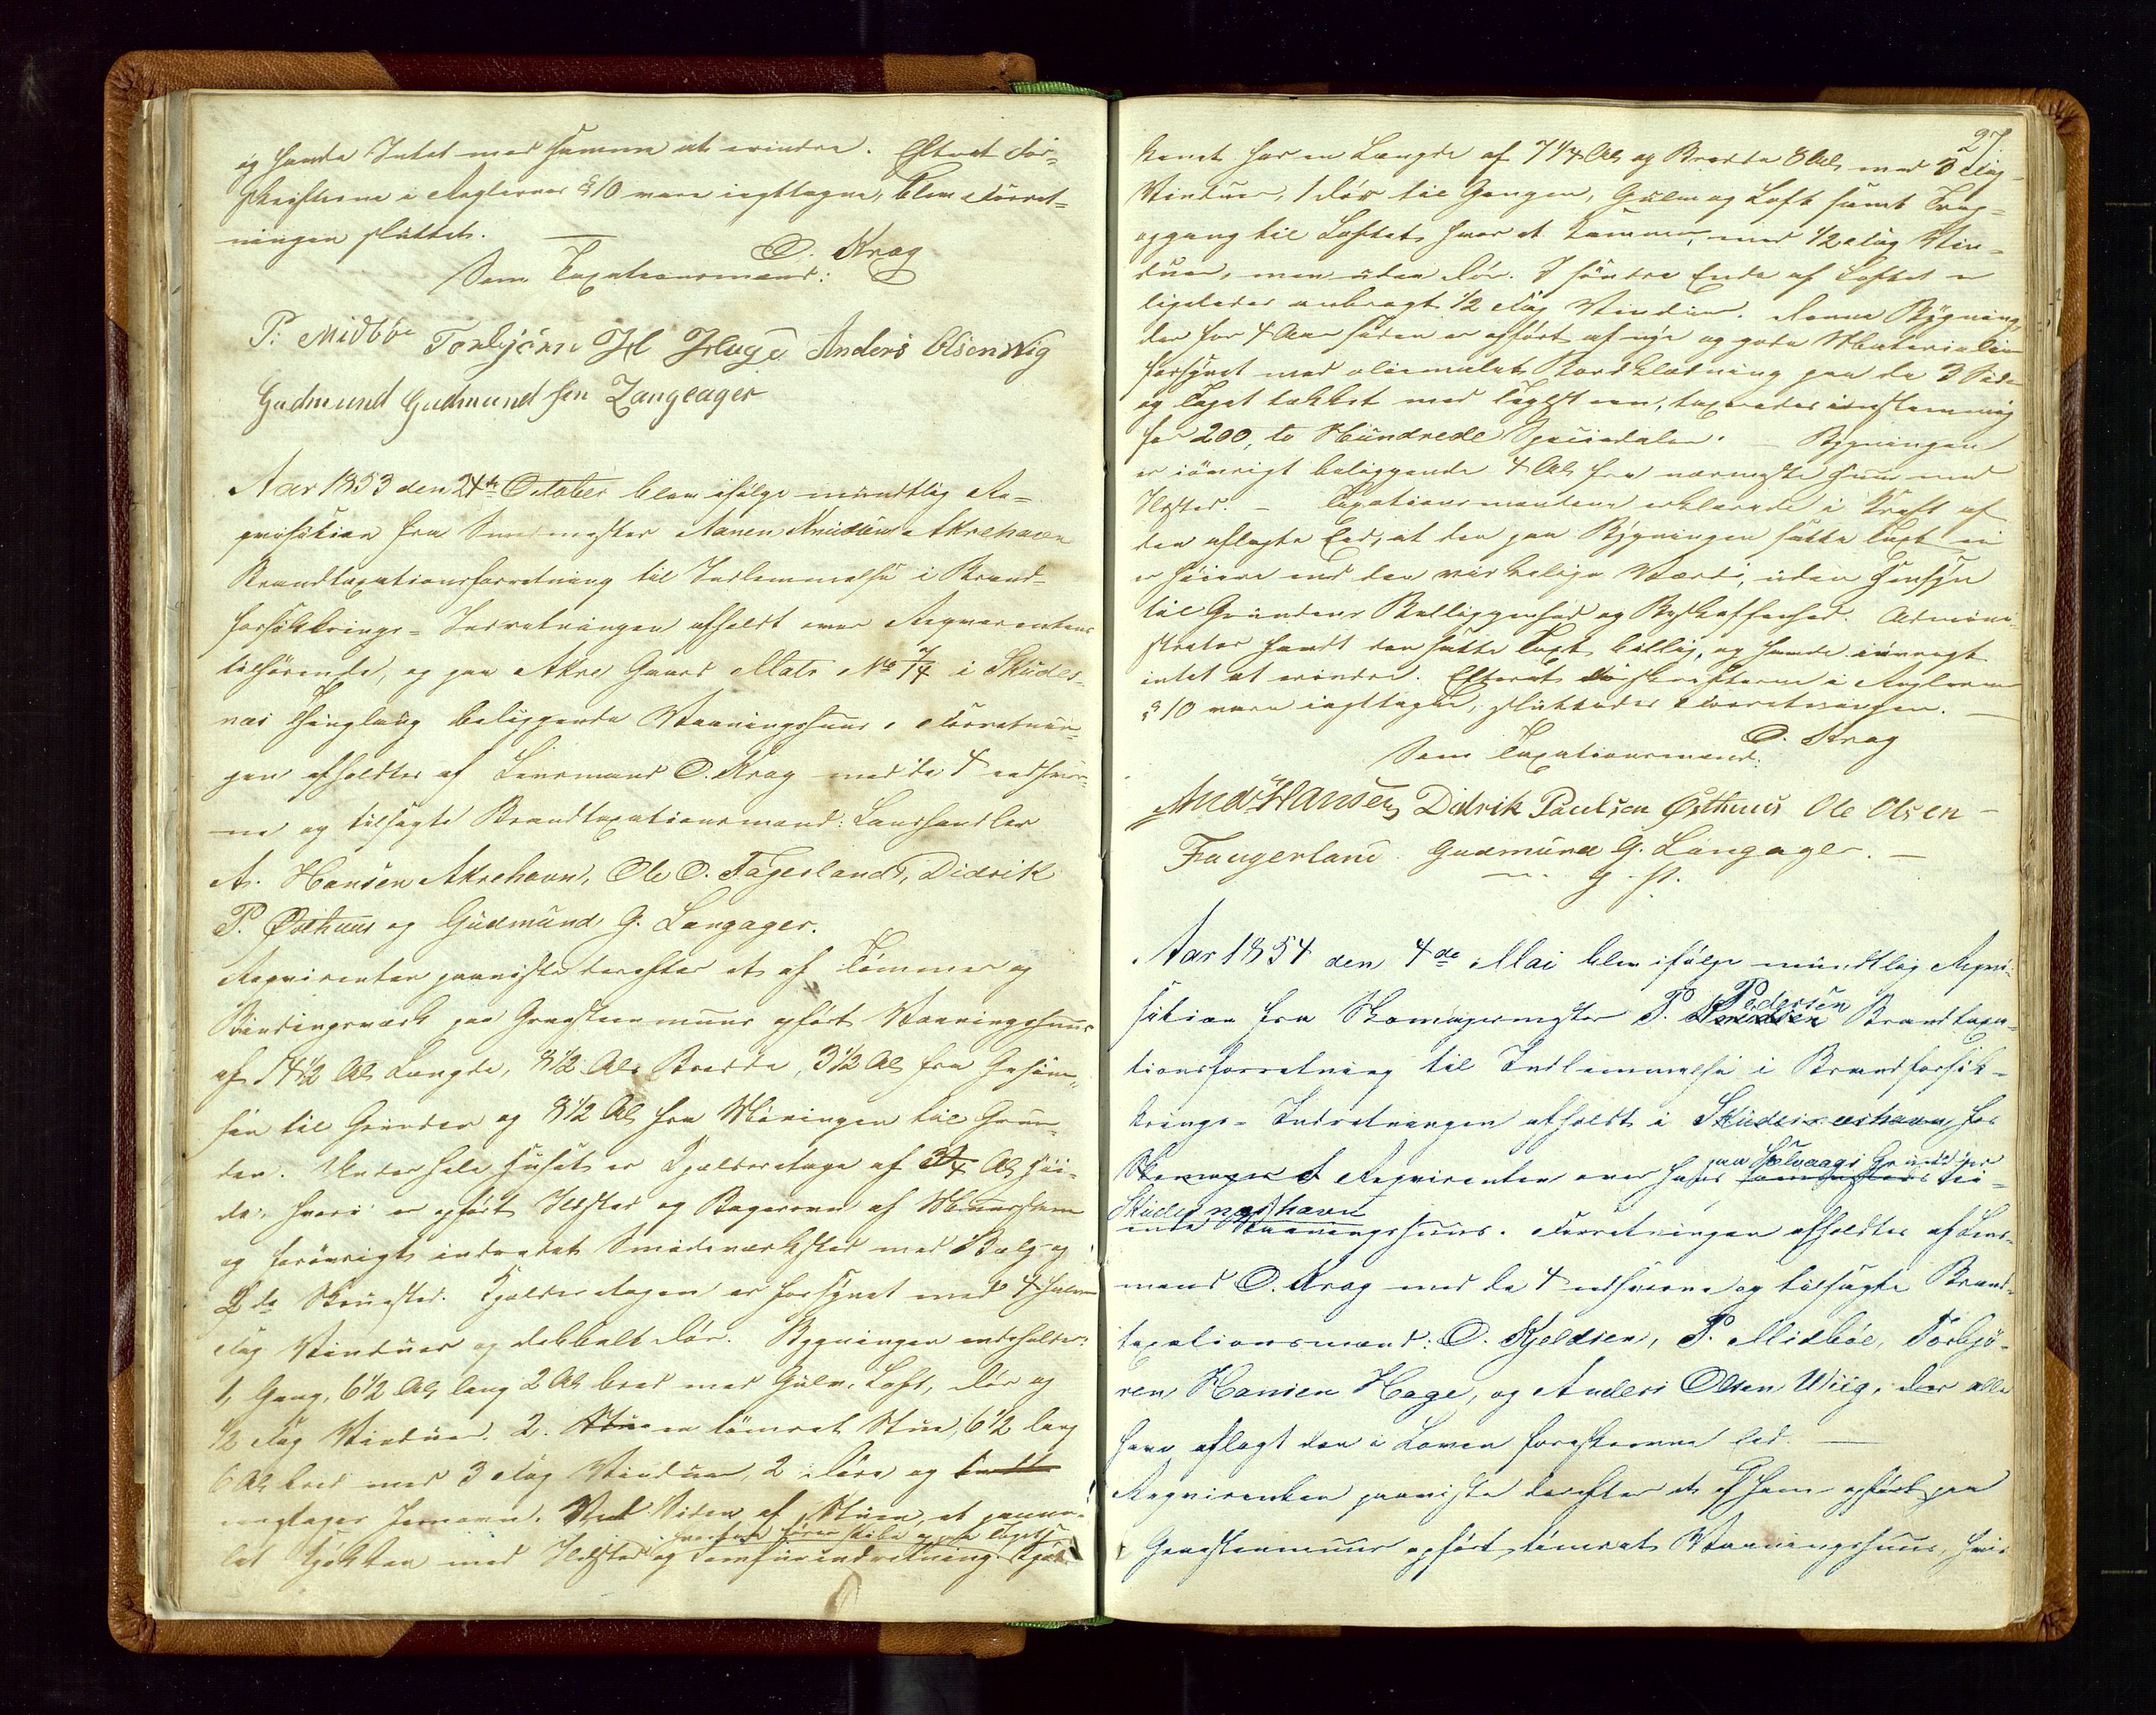 og havde Intet med Summen at erindre. Efterat For-
skrifterne i Reglernes § 10 vare iagttagne, blev Forret-
ningen sluttet.
O. Krag
Som Taxationsmænd:
P. Midböe Torbjörn H Hage Anders Olsen Wig
Gudmund Gudmundsen Langeager
Aar 1853 den 24de October blev ifølge mundtlig Re-
qvisition fra Smedmester Aanen Knudsen Akrehavn
Brandtaxationsforretning til Indlemmelse i Brand-
forsikkrings-Indretningen afholdt over Reqvirentens
tilhørende, og paa Akre Gaard Matr No 7/4 i Skudes-
næs Thinglaug beliggende Vaaningshuus. Forretnin-
gen afholdtes af Lensmand O. Krag med de 4 edsvor-
ne og tilsagte Brandtaxationsmænd: Landhandler
A. Hansen Akrehavn, Ole O. Fagerland, Didrik
P. Østhuus og Gudmund G. Langager.
Reqvirenten paaviste derefter et af Tømmer og
Bindingsværk paa Graasteenmuur opført Vaaningshuus
af 14½ Al. Længde, 8½ Al. Bredde, 3½ Al. fra Gesim-
sen til Grunden og 8½ Al. fra Møningen til Grun-
den. Under hele Huset er Kjelderetage af 3¼ Al. Høi-
de, hvori er opført Ildsted og Bagerovn af Muursteen
og forøvrigt indredet Smedeværksted med Bælg og
2de Skruested. Kjelderetagen er forsynet med 4 halve
Fag Vinduer og dobbelt Dør. Bygningen indeholder:
1, Gang, 6½ Al. lang 2 Al. bred med Gulv, Loft, Dør og
½ Fag Vinduer. 2. Stue en tømret Stue, 6½ lang
6 Al. bred med 3 Fag Vinduer, 2 Døre og
Jernovn. Ved Siden af Stuen et panne-
hvorfra Rør
let Kjøkken med Ildsted og Komfurindretning. Kjøk-
27.
kenet har en Længde af 7¼ Al. og Bredde 8 Al. med 3 Fag
Vinduer, 1 Dør til Gangen, Gulv og Loft samt Trap-
opgang til Loftet, hvor et Kammer, med ½ Fag Vin-
duer, men uden Dør. I søndre Ende af Loftet er
ligeledes anbragt ½ Fag Vinduer. Denne Bygning,
der for 4 Aar siden er opført af nye og gode Materialier
forsynet med oliemalet Bordklædning paa de 3 Sider
og Taget tækket med Taglsteen, taxeredes eenstemmig
for 200, to Hundrede Speciedaler. – Bygningen
er iøvrigt beliggende 4 Al. fra nærmeste Huus med
Ildsted. – Taxationsmændene erklærede i Kraft af
den aflagte Eed, at den paa Bygningen satte Taxt ei
er høiere end den virkelige Værdi, uden Hensyn
til Grundens Beliggenhed og Beskaffenhed. Admini-
strator fandt den satte Taxt billig, og havde iøvrigt
intet at erindre. Efterat Forskrifterne i Reglernes
§ 10 vare iagttagne, sluttedes Forretningen. –
O. Krag
Som Taxationsmænd:
Andr Hansen Didrik Paulsen Østhuus Ole Olsen –
Faugerland. Gudmund G. Langager. –
Aar 1854 den 4de Mai blev ifølge mundtlig Reqvi-
Pedersen
sition fra Skomagermester P. Brandtaxa-
tionsforretning til Indlemmelse i Brandforsik-
krings-Indretningen afholdt i Skudesnæshavn, hos
paa Sølvaags Grund ved
Skomager Reqvirenten over hans til-
Skudesnæshavn
Vaaningshuus. Forretningen afholdtes af Lens-
mand O. Krag med de 4 edsvorne og tilsagte Brand-
taxationsmænd: O. Kjeldsen, P. Midböe, Torbjö-
ren Hansen Hage, og Anders Olsen Wiig, der alle
have aflagt den i Loven foreskrevne Eed. –
Reqvirenten paaviste derefter et af ham opført paa
Graasteenmuur opført tømret Vaaningshuus, hvis